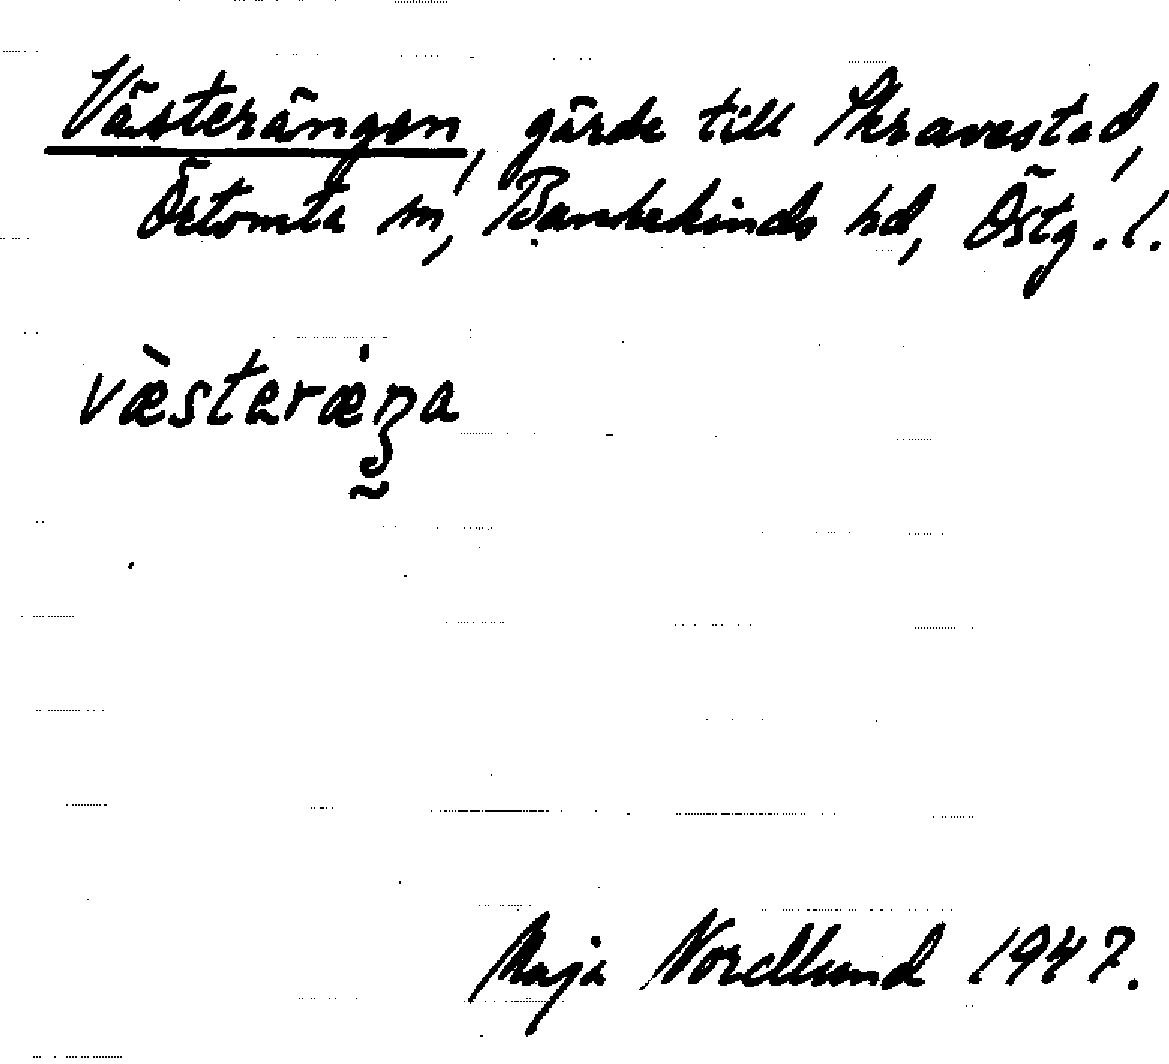 Västerängen, gärde till Skravestad,
Örtomta sn, Bankekinds hd, Östg. l.
væ̀steræ̇ŋa
Maja Nordlund 1947.